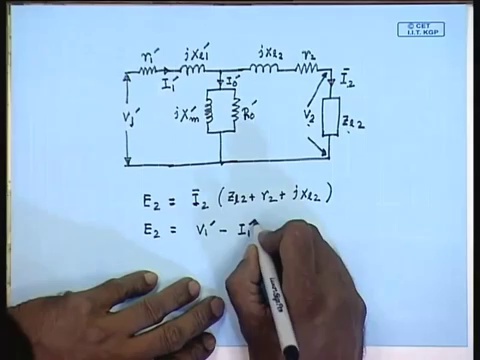 © CET
I.I.T. KGP
r₁′ jXℓ₁′ jXℓ₂ r₂
I₁′ I₀′ Ī₂
V₁′ jXₘ′ R₀′ V₂ Zℓ₂
E₂ = Ī₂ (Zℓ₂ + r₂ + jxℓ₂)
E₂ = V₁′ − I₁′